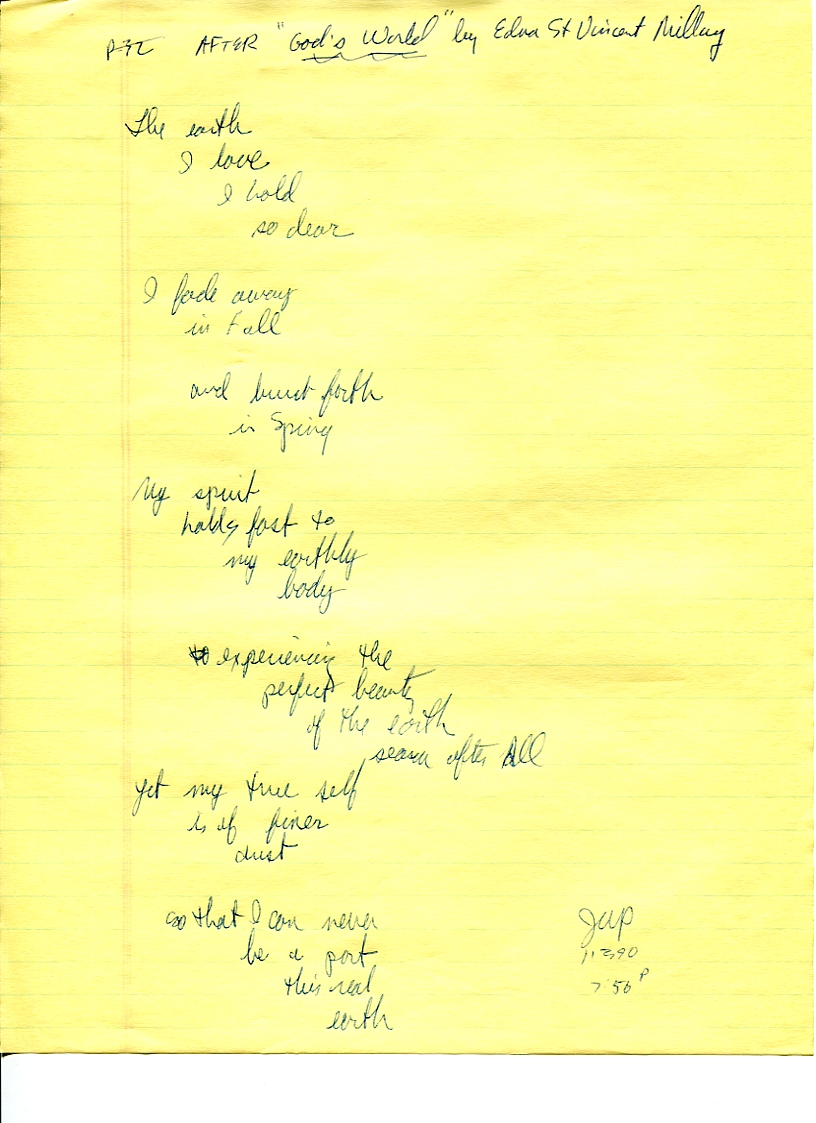 P32 AFTER "God's World" by Edna St Vincent Millay
The earth
I love
I hold
so dear
I fade away
in Fall
and burst forth
in Spring
My spirit
holds fast to
my earthly
body
to experiencing the
perfect beauty
of the earth
season after All
yet my true self
is of finer
dust
so that I can never
be a part
this real
earth
JWP
7:56 P